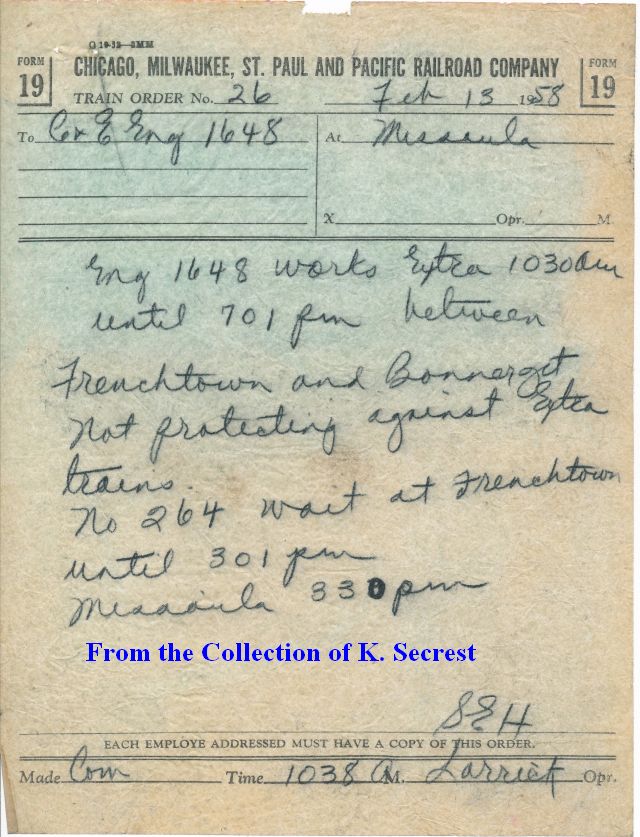 G 19-32—3MM
FORM 19
CHICAGO, MILWAUKEE, ST. PAUL AND PACIFIC RAILROAD COMPANY
FORM 19
TRAIN ORDER No. 26 Feb 13 1958
To C&E Eng 1648 At Missoula
X Opr. M.
Eng 1648 works Extra 1030am
until 701 pm between
Frenchtown and Bonner
Not protecting against Extra
trains.
No 264 wait at Frenchtown
until 301 pm
Missoula 330 pm
From the Collection of K. Secrest
SEH
EACH EMPLOYE ADDRESSED MUST HAVE A COPY OF THIS ORDER.
Made Com Time 1038 A M. Larrick Opr.